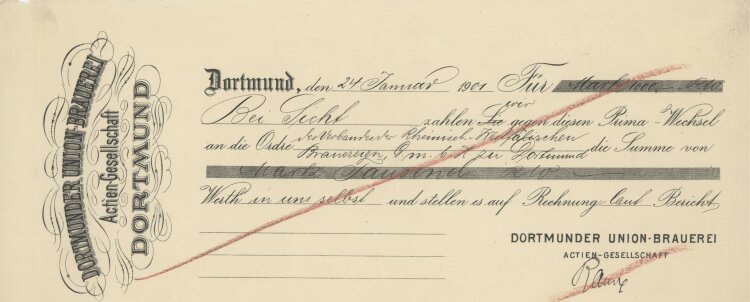 DORTMUNDER UNION-BRAUEREI
Actien-Gesellschaft
DORTMUND
Dortmund, den 24 Januar 1901 Für Mark 1000
wir
Bei Sicht zahlen Sie gegen diesen Prima-Wechsel
des Verbandes der Rheinisch-Westfälischen
an die Ordre Brauereien G.m.b.H. zu Dortmund die Summe von
Mark Tausend
Werth in uns selbst und stellen es auf Rechnung laut Bericht
DORTMUNDER UNION-BRAUEREI
ACTIEN-GESELLSCHAFT